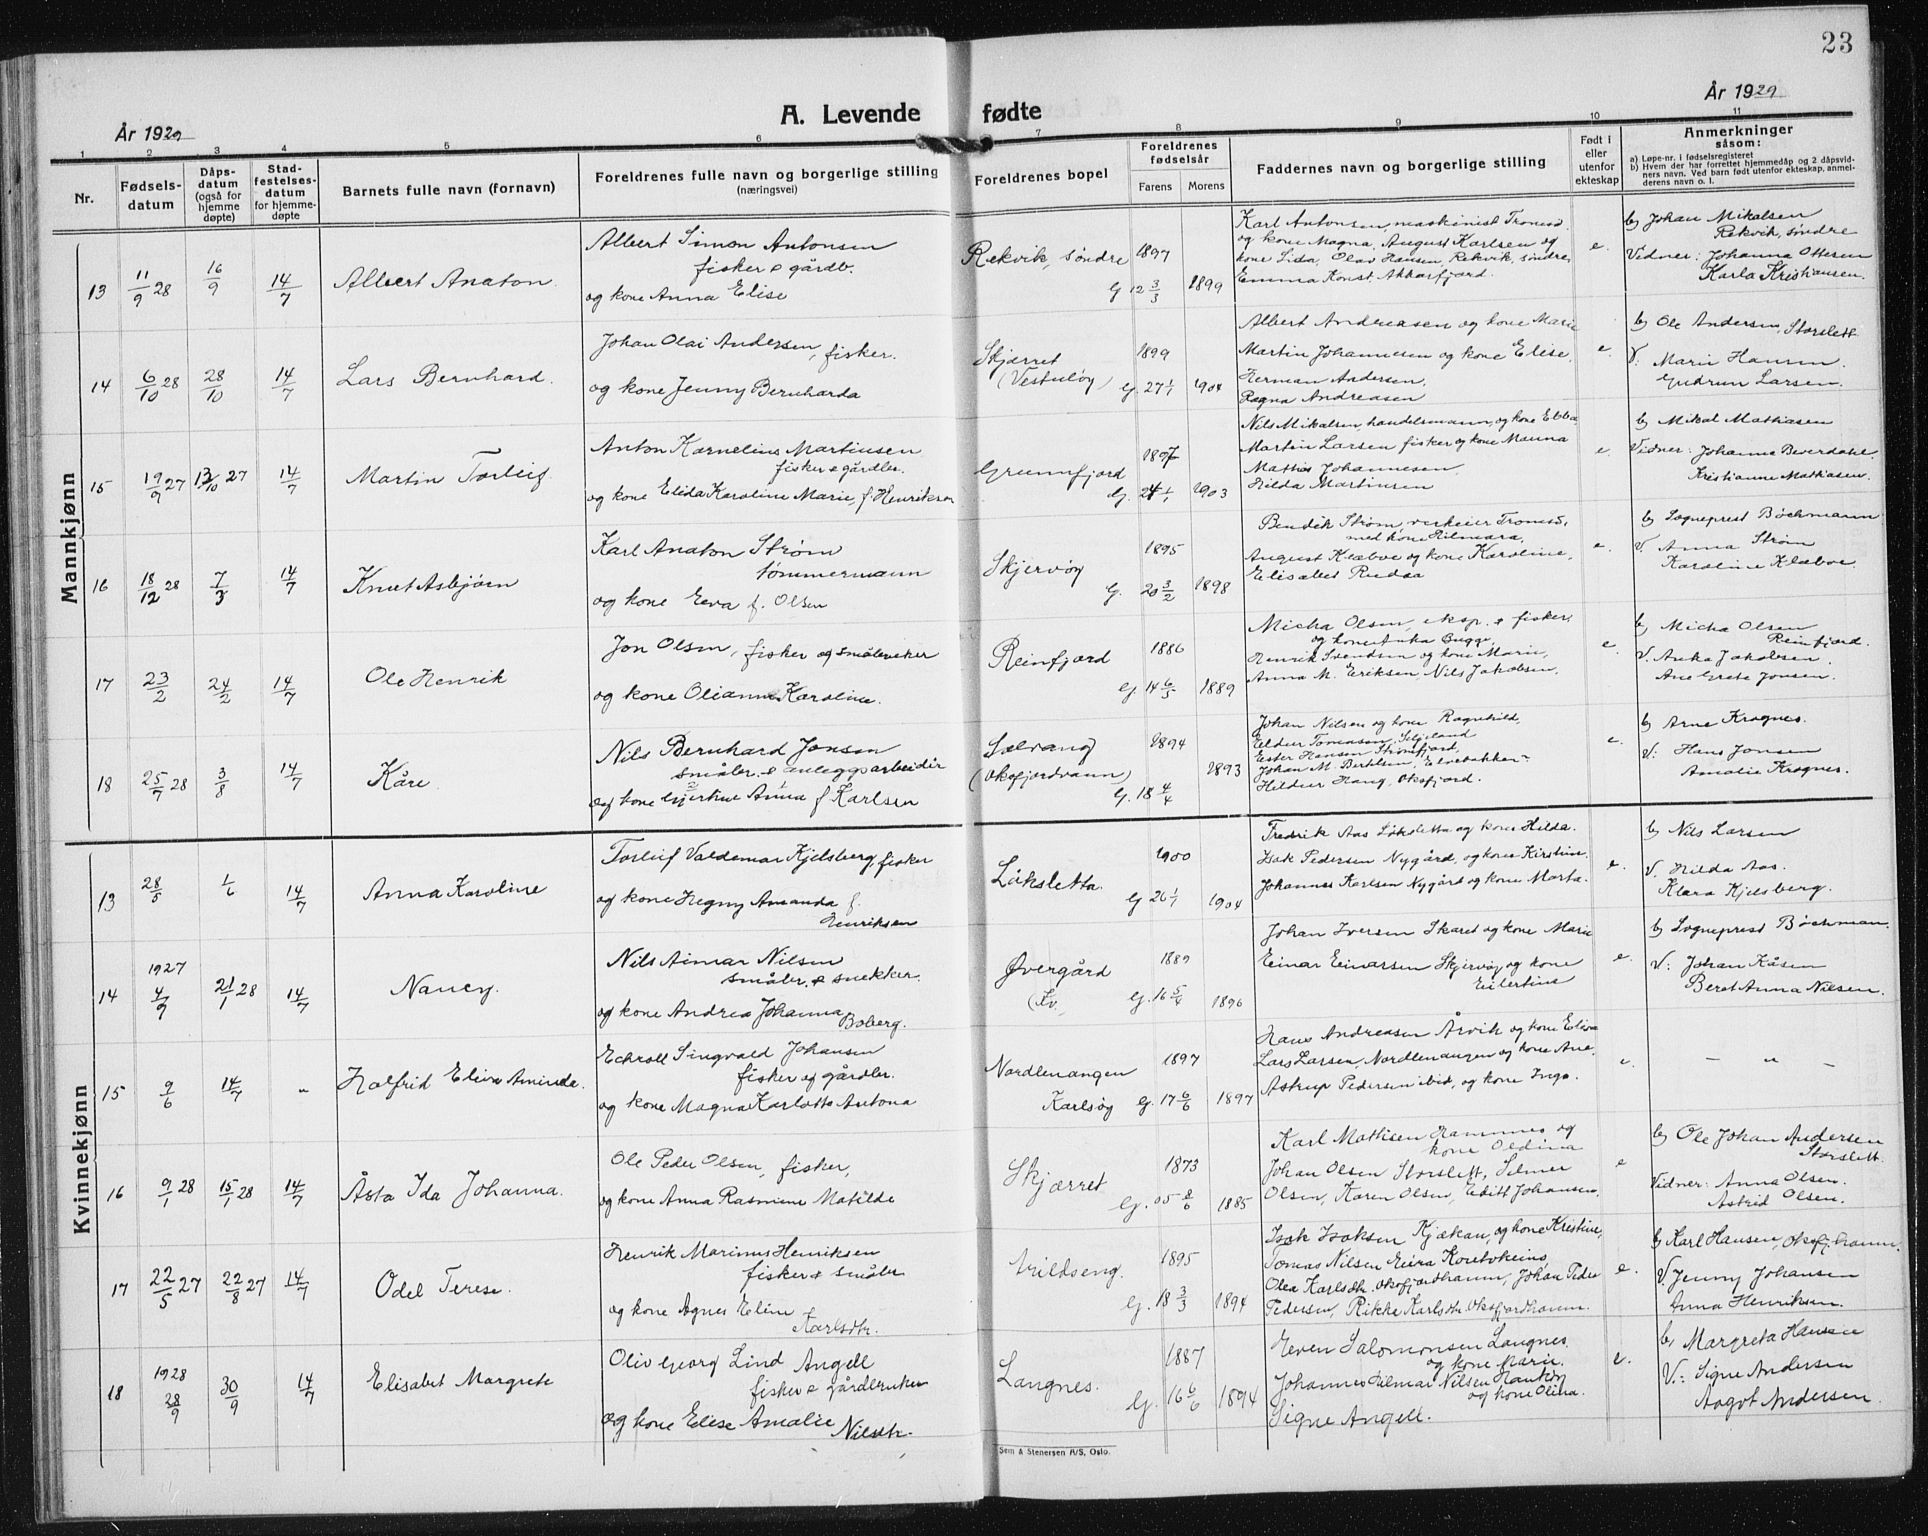 23
År 1929
A. Levende fødte
År 1929
1 2 3 4 5 6 7 8 9 10 11
Nr.
Fødsels-
datum
Dåps-
datum
(også for
hjemme
døpte)
Stad-
festelses-
datum
for hjemme-
døpte
Barnets fulle navn (fornavn)
Foreldrenes fulle navn og borgerlige stilling
(næringsvei)
Foreldrenes bopel
Foreldrenes
fødselsår
Farens Morens
Faddernes navn og borgerlige stilling
Født i
eller
utenfor
ekteskap
Anmerkninger
såsom:
a) Løpe-nr. i fødselsregisteret
b) Hvem der har forrettet hjemmedåp og 2 dåpsvid-
ners navn. Ved barn født utenfor ekteskap, anmel-
derens navn o. l.
Mannkjønn
13 11/9 28 16/9 14/7 Albert Anaton.
Albert Simon Antonsen
fisker & gårdb.
og kone Anna Elise
Rekvik, søndre 1897
G 12 3/3 1899
Karl Antonsen, maskinist Tromsø
og kone Magna, August Karlsen og
kone Lida, Olav Hansen, Rekvik, søndre
Emma Konst. Akkarfjord.
e.
b) Johan Mikalsen
Rekvik, søndre
Vidner: Johanna Ottesen
Karla Kristiansen.
14 6/10 28 28/10 14/7 Lars Bernhard.
Johan Olai Andersen, fisker.
og kone Jenny Bernharda
Skjærret 1899
(Vestuløy) G. 27 1/1 1904
Albert Andreasen og kone Marie
Martin Johannesen og kone Elise,
Herman Andersen,
Ragna Andreasen
e.
b) Ole Andersen, Storslett
V. Marie Hansen
Gudrun Larsen.
15 19/9 27 13/10 27 14/7 Martin Torleif.
Anton Kornelius Martinsen
fisker & gårdbr.
og kone Elida Karoline Marie, f. Henriksen
Grunnfjord 1897
G. 24 1/1 1903
Nils Mikalsen, handelsmann, og kone Ebba
Martin Larsen fisker og kone Manna
Mathis Johannesen
Hilda Martinsen
e.
b) Mikal Mathiasen
Vidner: Johanne Beverdahl.
Kristianne Mathiasen.
16 18/12 28 7/3 14/7 Knut Asbjørn
Karl Anaton Strøm
tømmermann
og kone Eeva f. Olsen
Skjervøy 1895
G. 20 3/2 1898
Bendik Strøm, verkeier Tromsø,
med kone Hilmara,
August Klæboe og kone Karoline,
Elisabet Rudaa
e.
b) Sogneprest Bøchmann
V. Anna Strøm
Karoline Klæboe.
17 23/2 24/2 14/7 Ole Henrik
Jon Olsen, fisker og småbruker
og kone Olianna Karoline.
Reinfjord 1886
G. 14 6/5 1889
Micha Olsen, eksp. & fisker,
og kone Anka Bugge,
Henrik Svendsen og kone Marie,
Anna M. Eriksen Nils Jakobsen,
e.
b) Micha Olsen
Reinfjord.
V. Anka Jakobsen.
Ane Grete Jonsen.
18 25/7 28 3/8 14/7 Kåre.
Nils Bernhard Jonsen
småbr. & anleggsarbeider
og kone Gjertine Anna f. Karlsen
Solvang 1894
(Oksfjordvann) 1893
G. 18 4/4
Johan Nilsen og kone Ragnhild,
Ester Hansen Straumfjord,
Johan M. Bertelsen, Elvebakken
Hildur Haug, Oksfjord.
e.
b) Arne Krognes.
V: Hans Jonsen
Amalie Krognes.
Kvinnekjønn
13 28/5 1/6 14/7 Anna Karoline
Torleif Valdemar Kjelsberg, fisker
og kone Hegny Amanda f.
Henriksen
Løksletta. 1900
G 26 1/7 1904
Fredrik Aas Løksletta og kone Hilda.
Isak Pedersen Nygård, og kone Kirstine.
Johannes Karlsen Nygård og kone Marta.
e.
b) Nils Larsen
V. Hilda Aas.
Klara Kjelsberg.
14 1927 4/9 21/1 28 14/7 Nancy.
Nils Aimar Nilsen
småbr. & snekker.
og kone Andrea Johanna
Boberg.
Øvergård 1889
(Kv. G. 16 5/4 1896
Johan Iversen Skaret og kone Marie
Einar Einarsen Skjervøy og kone
Eilertine
e.
b) Sogneprest Bøchman.
V: Johan Kåsen
Beret Anna Nilsen.
15 9/6 14/7 – Halfrid Eline Aminda.
Edvoll Singvald Johansen
fisker og gårdbr.
og kone Magna Karlotte Antona
Nordlenangen 1897
Karlsøy G. 17 6/6 1897
Hans Andreasen Årvik og kone Elise
Lars Larsen, Nordlenangen og kone Ane,
Astrup Pedersen ibid, og kone Inga.
e.
– " –
16 9/1 28 15/1 28 14/7 Åsta Ida Johanna.
Ole Peder Olsen, fisker,
og kone Anna Rasmine Matilde
Skjærret 1873
G. 05 8/6 1885
Karl Mathisen Hamnnes og
kone Oldina
Johan Olsen Storslett, Selmer
Olsen, Karen Olsen, Editt Johansen,
e
b) Ole Johan Andersen
Storslett.
Vidner: Anna Olsen.
Astrid Olsen.
17 22/5 27 22/8 27 14/7 Odel Terese.
Henrik Marinus Henriksen
fisker & småbr
og kone Agnes Eline f
Karlsdtr.
Vildseng. 1895
G. 18 3/3 1894
Isak Isaksen Kjækan, og kone Kristine,
Tomas Nilsen Eira Koutokeino
Olea Karlsdtr. Oksfjordhamn, Johan Peder
Pedersen, Rikke Karlsdtr. Oksfjordhamn.
e.
b) Karl Hansen, Oksfj.hamn.
V. Jenny Johansen
Anna Henriksen.
18 1928 28/9 30/9 14/7 Elisabet Margrete
Oliv Georg Lind Angell
fisker & gårdbruker
og kone Elise Amalie
Nilsdtr.
Langnes. 1887
G. 16 6/6 1894
Even Salomonsen Langnes.
og kone Marie.
Johannes Hilmar Nilsen Haukøy
og kone Olina.
Signe Angell.
e.
b, Margreta Hansen
V.: Signe Andersen
Aagot Andersen.
Sem & Stenersen A/S, Oslo.